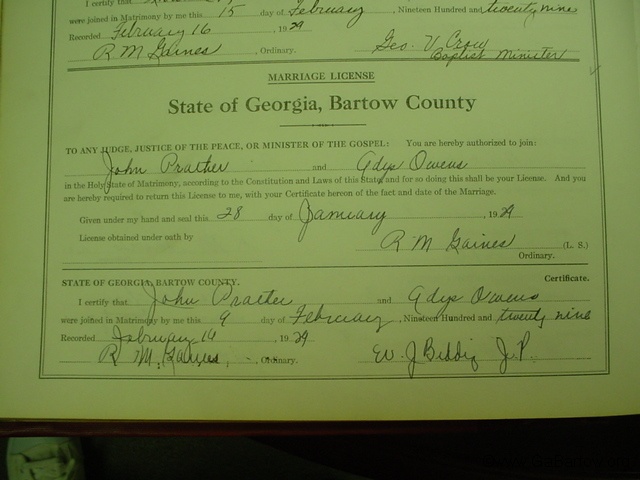 I certify that
were joined in Matrimony by me this 15 day of February, Nineteen Hundred and twenty nine
Recorded February 16, 1929
R M Gaines, Ordinary. Geo. V. Crow
Baptist Minister
MARRIAGE LICENSE
State of Georgia, Bartow County
TO ANY JUDGE, JUSTICE OF THE PEACE, OR MINISTER OF THE GOSPEL: You are hereby authorized to join:
John Prather and Adys Owens
in the Holy State of Matrimony, according to the Constitution and Laws of this State, and for so doing this shall be your License. And you
are hereby required to return this License to me, with your Certificate hereon of the fact and date of the Marriage.
Given under my hand and seal this 28 day of January, 1929
License obtained under oath by R M Gaines (L. S.)
Ordinary.
STATE OF GEORGIA, BARTOW COUNTY. Certificate.
I certify that John Prather and Adys Owens
were joined in Matrimony by me this 9 day of February, Nineteen Hundred and twenty nine
Recorded February 16, 1929
R. M. Gaines, Ordinary. W. J J.P.